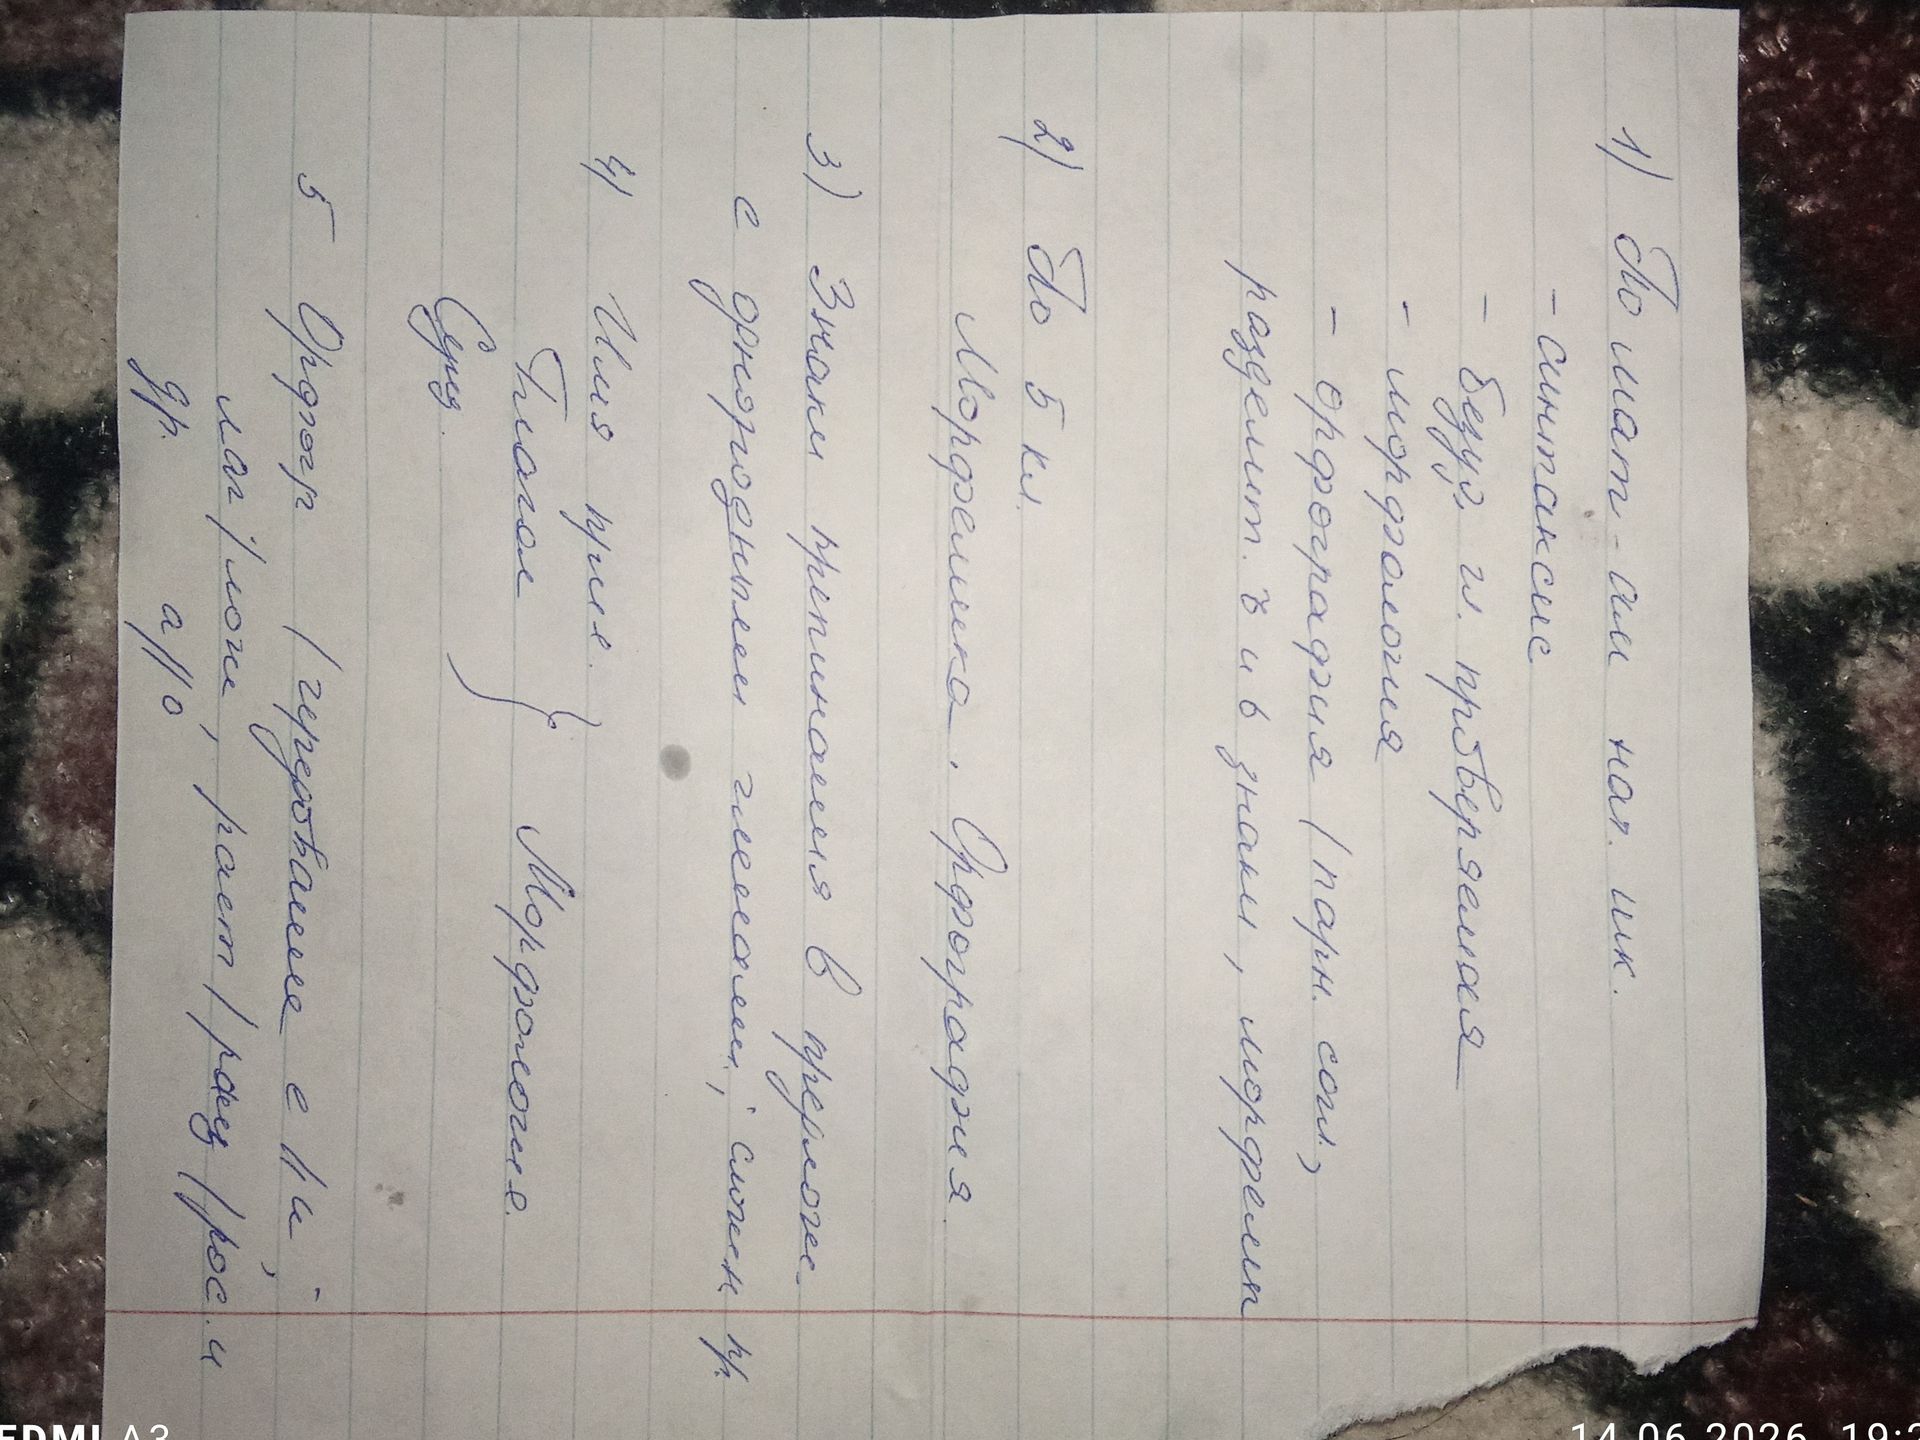 1) По мат-ам нач. шк.
- синтаксис
- безуд. гл. проверяемая
- морфология
- орфография (парн. согл.,
разделит. ъ и ь знаки, морфемы
2) По 5 кл.
Морфемика. Орфография
3) Знаки препинания в предлож.
с однородными членами; сложн пр.
4) Имя прил.
Глагол } Морфология.
Сущ.
5 Орфогр (чередование е//и,
лаг/лож, раст/ращ/рос. и
др. а//о
EDMI A3
14.06.2026 19:2